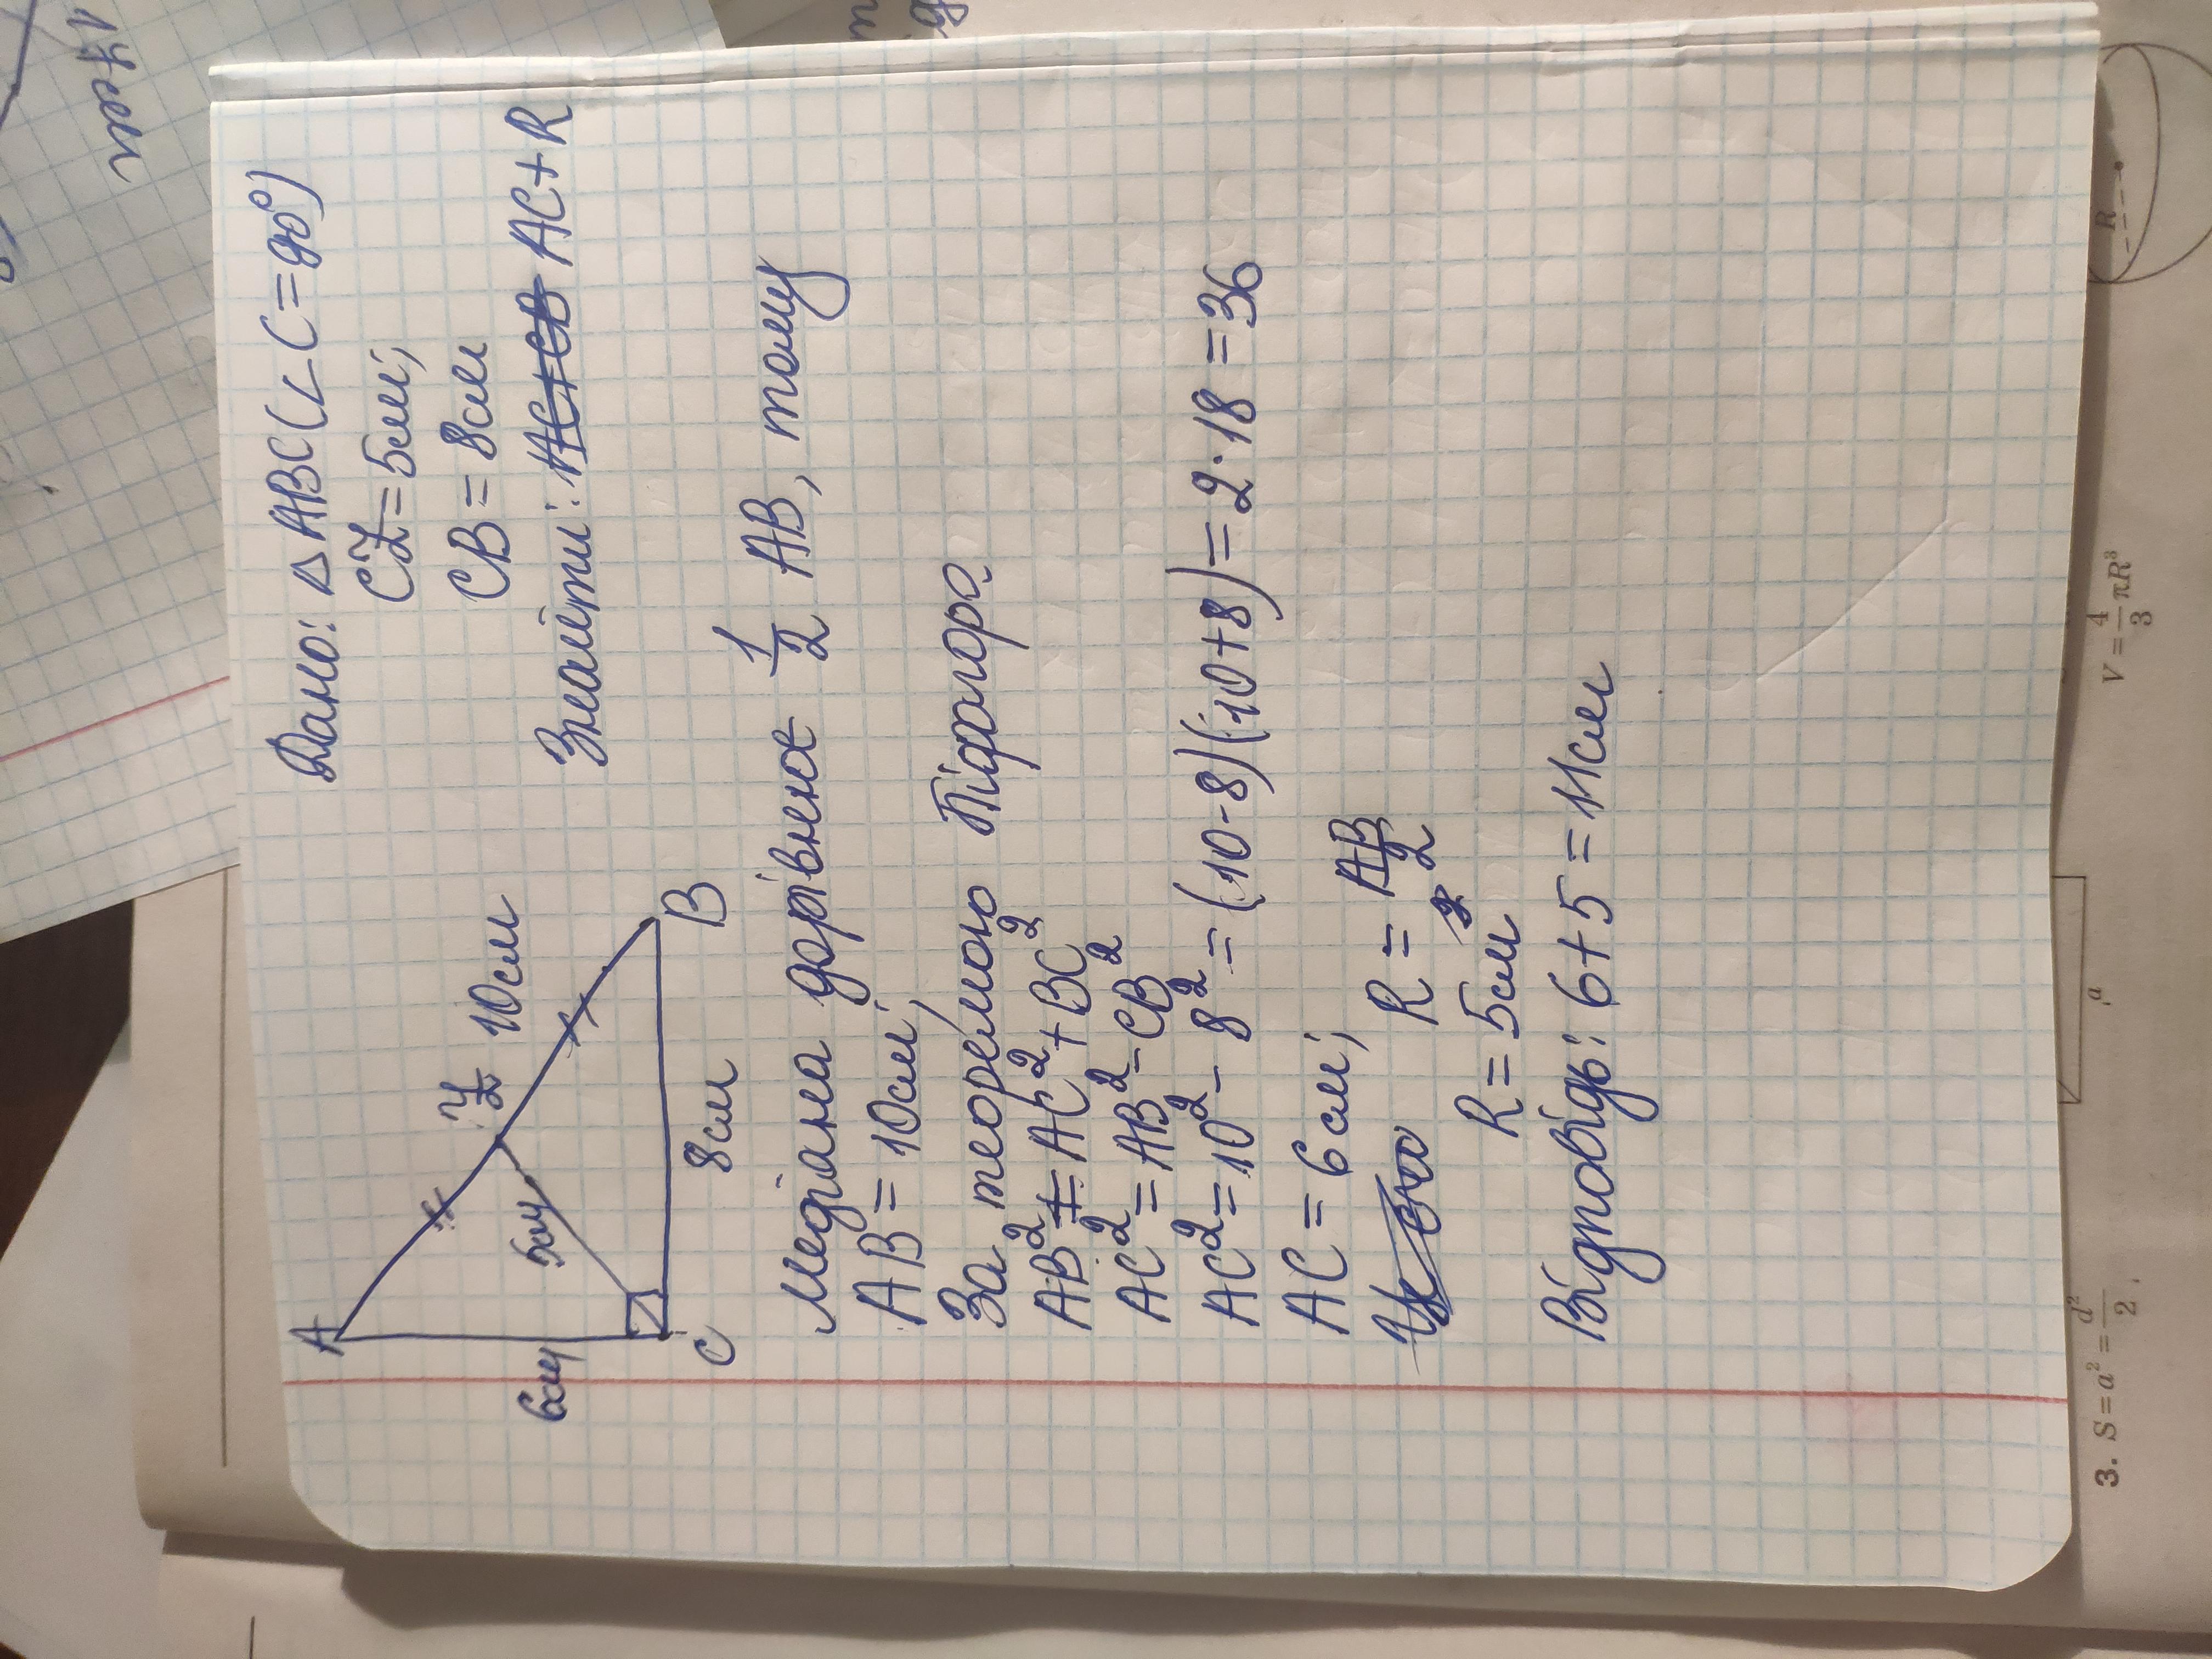 Дано: △ABC(∠C=90°)
CZ=5см;
CB=8см
Знайти: AC+CB AC+R
A
Z
10см
5см
6см
C
8см
B
Медіана дорівнює 1/2 AB, тому
AB=10см;
За теоремою Піфагора
AB²=AC²+BC²
AC²=AB²-CB²
AC²=10²-8²=(10-8)(10+8)=2·18=36
AC=6см;
R=AB/2
R=5см
Відповідь: 6+5=11см
17см
3. S=a²=d²/2,
a
V=4/3πR³
R